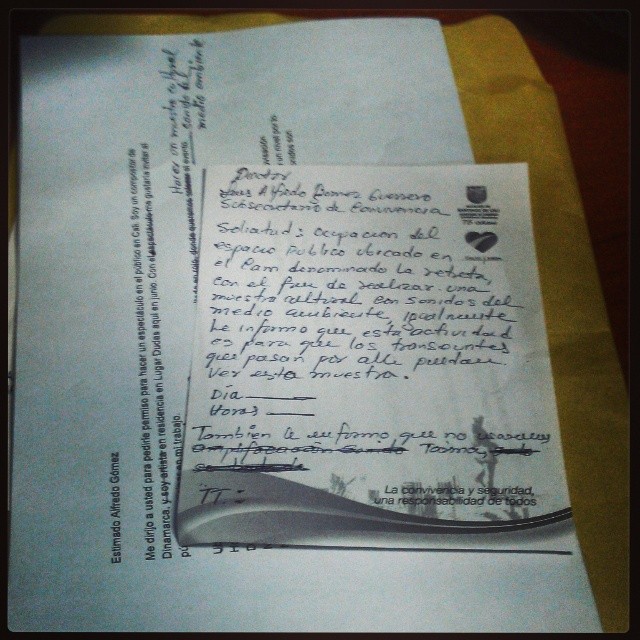 Doctor
Luis Alfredo Gomez Guerrero
Subsecretario de Convivencia
Solicitud: ocupación del
espacio publico ubicado en
el Cam denominado La retreta,
con el fin de realizar una
muestra cultural con sonidos del
medio ambiente igualmente
le informo que esta actividad
es para que los transeuntes
que pasan por alli puedan
ver esta muestra.
Día
Horas
Tambien le informo que no
La convivencia y seguridad,
una responsabilidad de todos
Estimado Alfredo Gómez
Me dirijo a usted para pedirle permiso para hacer un espectáculo en el público en Cali. Soy un compositor de
Dinamarca, y soy artista en residencia en Lugar Dudas aquí en junio. Con el espectáculo me gustaría invitar al
mi trabajo.
Hacer un muestra cultural
medio ambiente